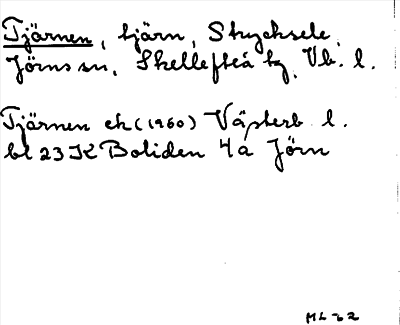 Tjärnen, tjärn, Strycksele,
Jörns sn, Skellefteå tg, Vb. l.
Tjärnen ek (1960) Västerb l.
bl 23 K Boliden 4a Jörn
ML-62